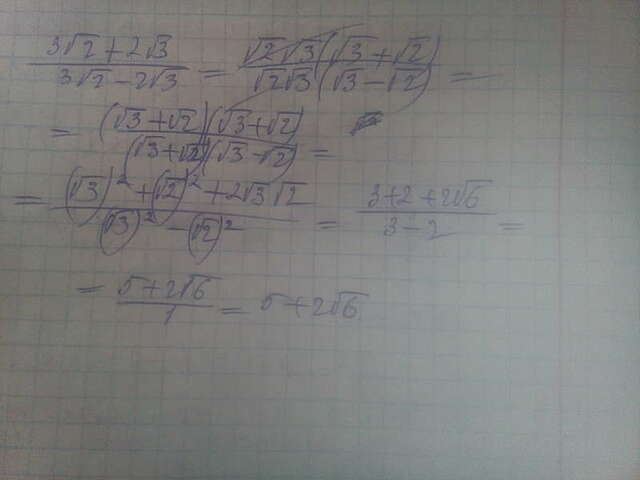 (3√2 + 2√3)/(3√2 − 2√3) = (√2√3(√3 + √2))/(√2√3(√3 − √2)) =
= ((√3 + √2)(√3 + √2))/((√3 + √2)(√3 − √2)) =
= ((√3)² + (√2)² + 2√3√2)/((√3)² − (√2)²) = (3 + 2 + 2√6)/(3 − 2) =
= (5 + 2√6)/1 = 5 + 2√6